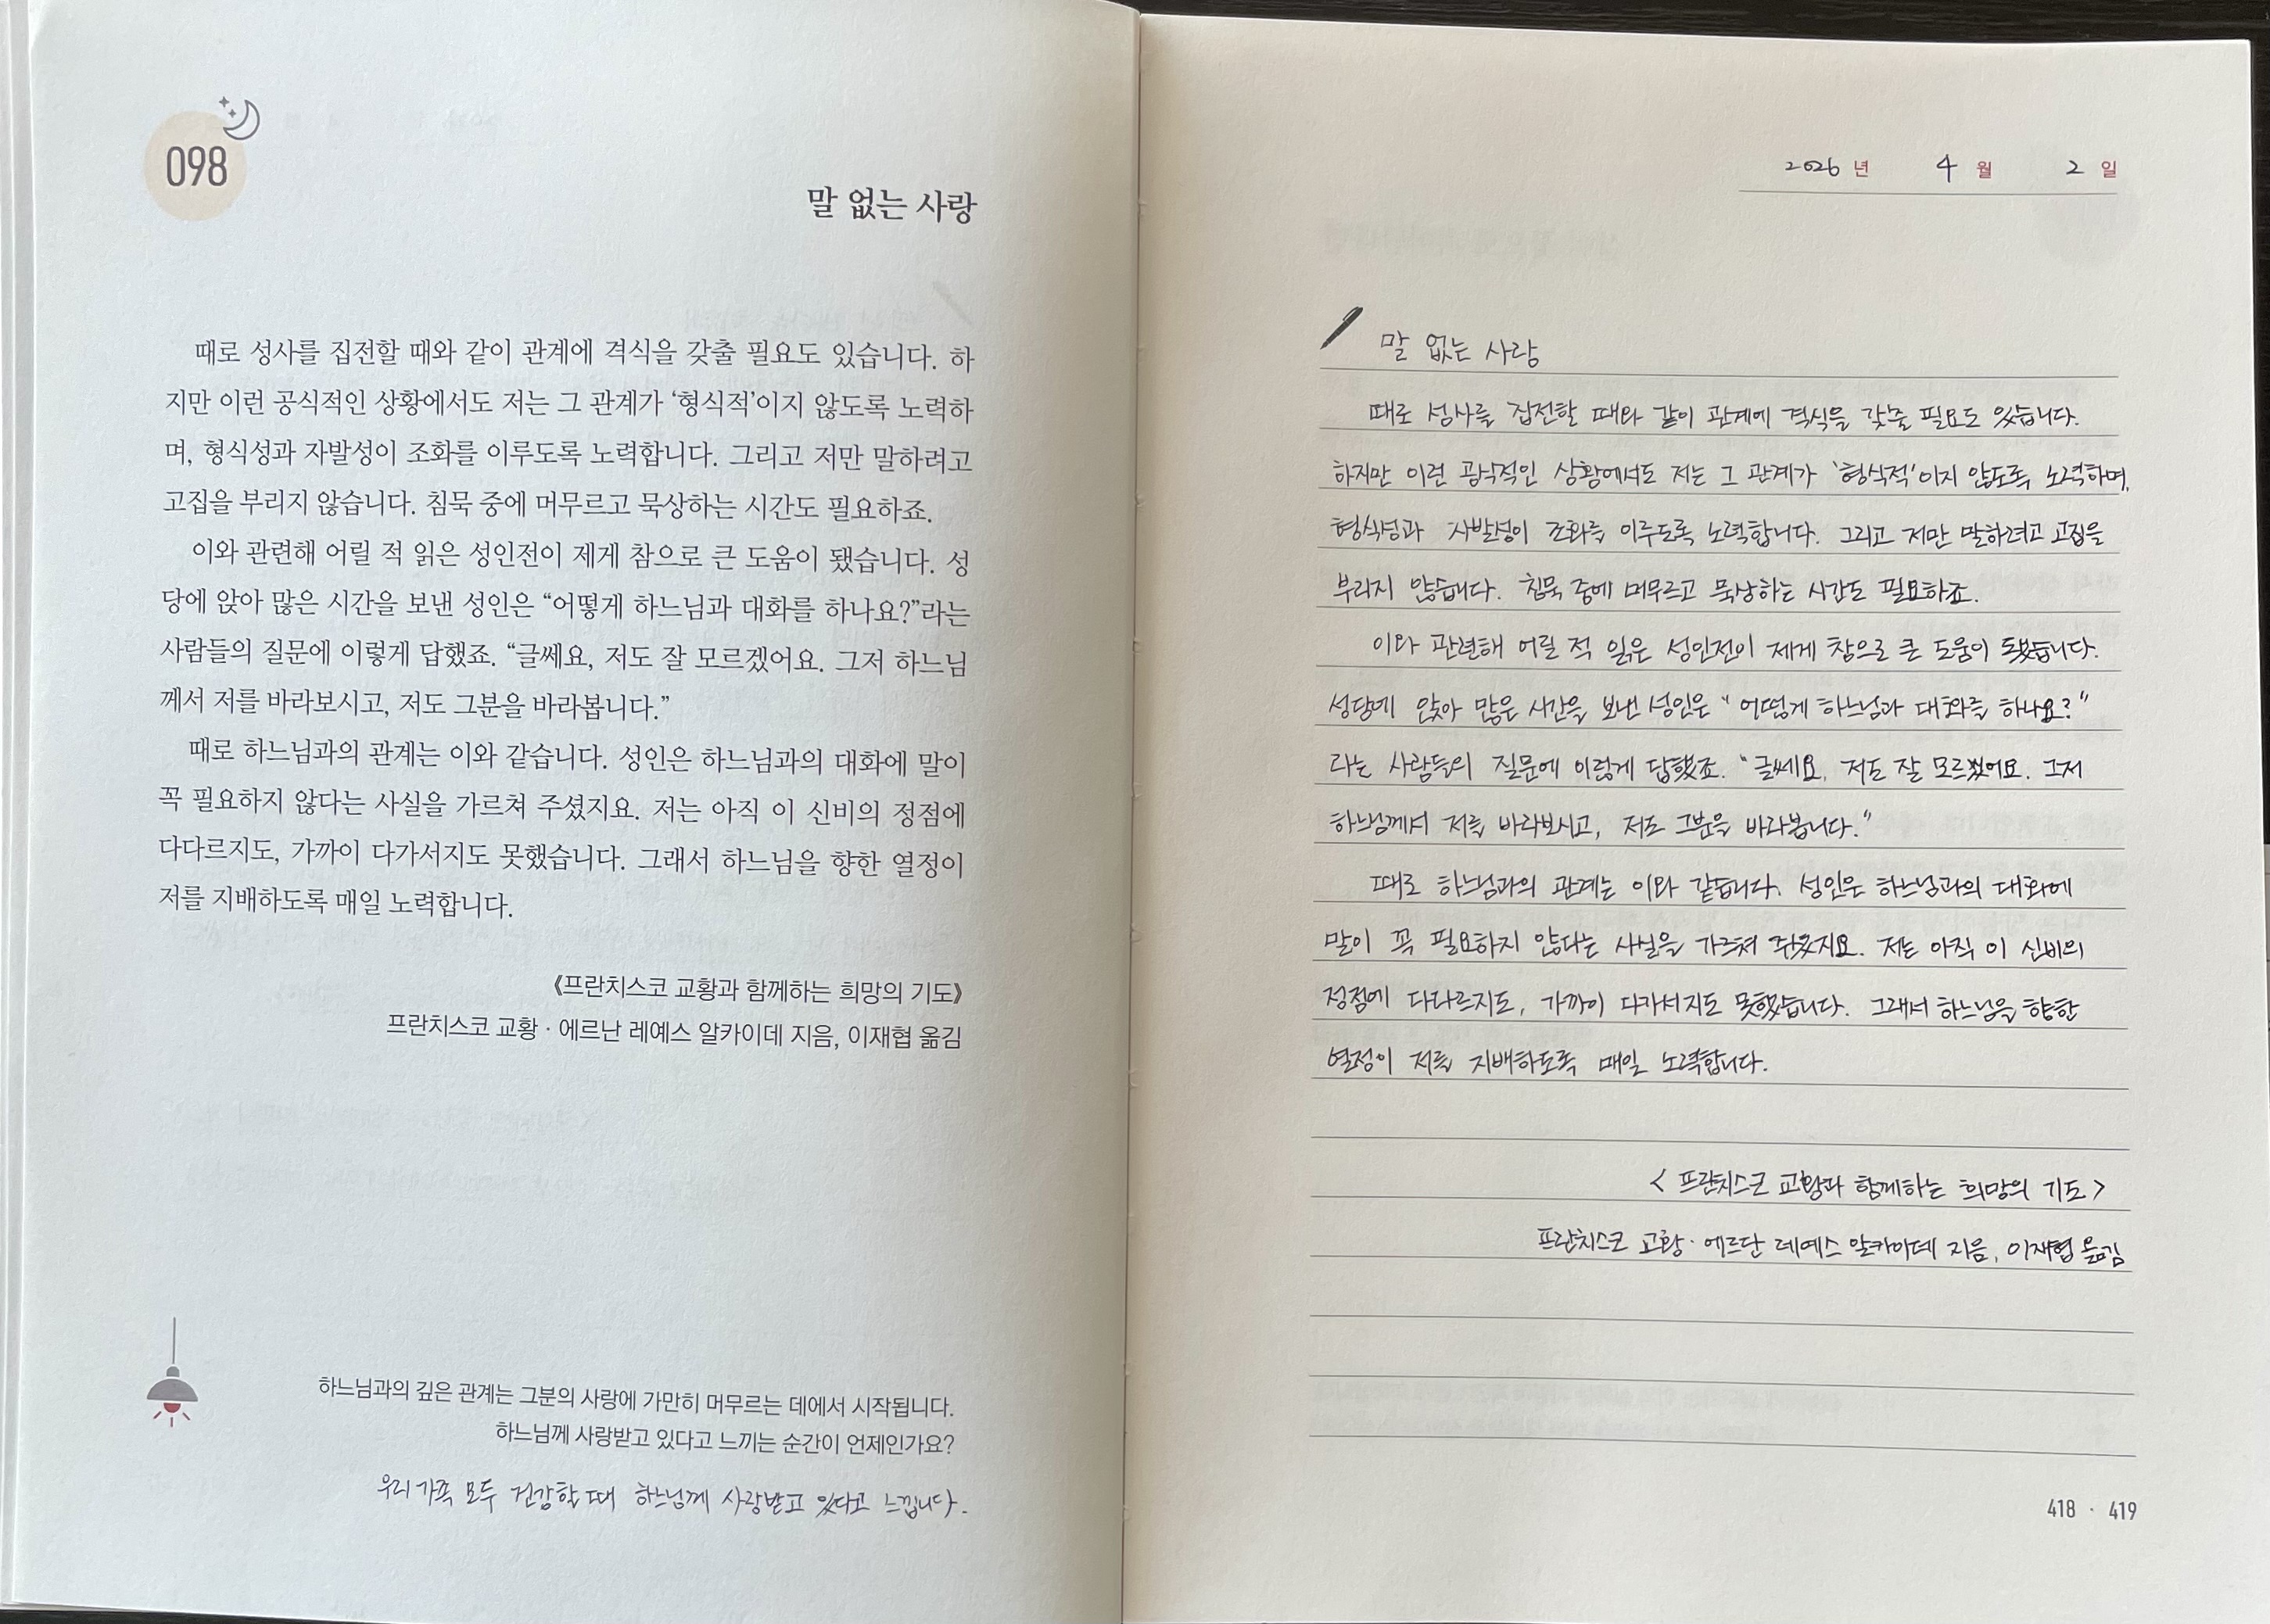 098
말 없는 사랑
때로 성사를 집전할 때와 같이 관계에 격식을 갖출 필요도 있습니다. 하
지만 이런 공식적인 상황에서도 저는 그 관계가 ‘형식적’이지 않도록 노력하
며, 형식성과 자발성이 조화를 이루도록 노력합니다. 그리고 저만 말하려고
고집을 부리지 않습니다. 침묵 중에 머무르고 묵상하는 시간도 필요하죠.
이와 관련해 어릴 적 읽은 성인전이 제게 참으로 큰 도움이 됐습니다. 성
당에 앉아 많은 시간을 보낸 성인은 “어떻게 하느님과 대화를 하나요?”라는
사람들의 질문에 이렇게 답했죠. “글쎄요, 저도 잘 모르겠어요. 그저 하느님
께서 저를 바라보시고, 저도 그분을 바라봅니다.”
때로 하느님과의 관계는 이와 같습니다. 성인은 하느님과의 대화에 말이
꼭 필요하지 않다는 사실을 가르쳐 주셨지요. 저는 아직 이 신비의 정점에
다다르지도, 가까이 다가서지도 못했습니다. 그래서 하느님을 향한 열정이
저를 지배하도록 매일 노력합니다.
《프란치스코 교황과 함께하는 희망의 기도》
프란치스코 교황 · 에르난 레예스 알카이데 지음, 이재협 옮김
하느님과의 깊은 관계는 그분의 사랑에 가만히 머무르는 데에서 시작됩니다.
하느님께 사랑받고 있다고 느끼는 순간이 언제인가요?
우리 가족 모두 건강할 때 하느님께 사랑받고 있다고 느낍니다.
2026 년 4 월 2 일
말 없는 사랑
때로 성사를 집전할 때와 같이 관계에 격식을 갖출 필요도 있습니다.
하지만 이런 공식적인 상황에서도 저는 그 관계가 '형식적'이지 않도록 노력하며,
형식성과 자발성이 조화를 이루도록 노력합니다. 그리고 저만 말하려고 고집을
부리지 않습니다. 침묵 중에 머무르고 묵상하는 시간도 필요하죠.
이와 관련해 어릴 적 읽은 성인전이 제게 참으로 큰 도움이 됐습니다.
성당에 앉아 많은 시간을 보낸 성인은 "어떻게 하느님과 대화를 하나요?"
라는 사람들의 질문에 이렇게 답했죠. "글쎄요, 저도 잘 모르겠어요. 그저
하느님께서 저를 바라보시고, 저도 그분을 바라봅니다."
때로 하느님과의 관계는 이와 같습니다. 성인은 하느님과의 대화에
말이 꼭 필요하지 않다는 사실을 가르쳐 주셨지요. 저는 아직 이 신비의
정점에 다다르지도, 가까이 다가서지도 못했습니다. 그래서 하느님을 향한
열정이 저를 지배하도록 매일 노력합니다.
<프란치스코 교황과 함께하는 희망의 기도>
프란치스코 교황 · 에르단 레예스 알카이데 지음, 이재협 옮김
418 · 419